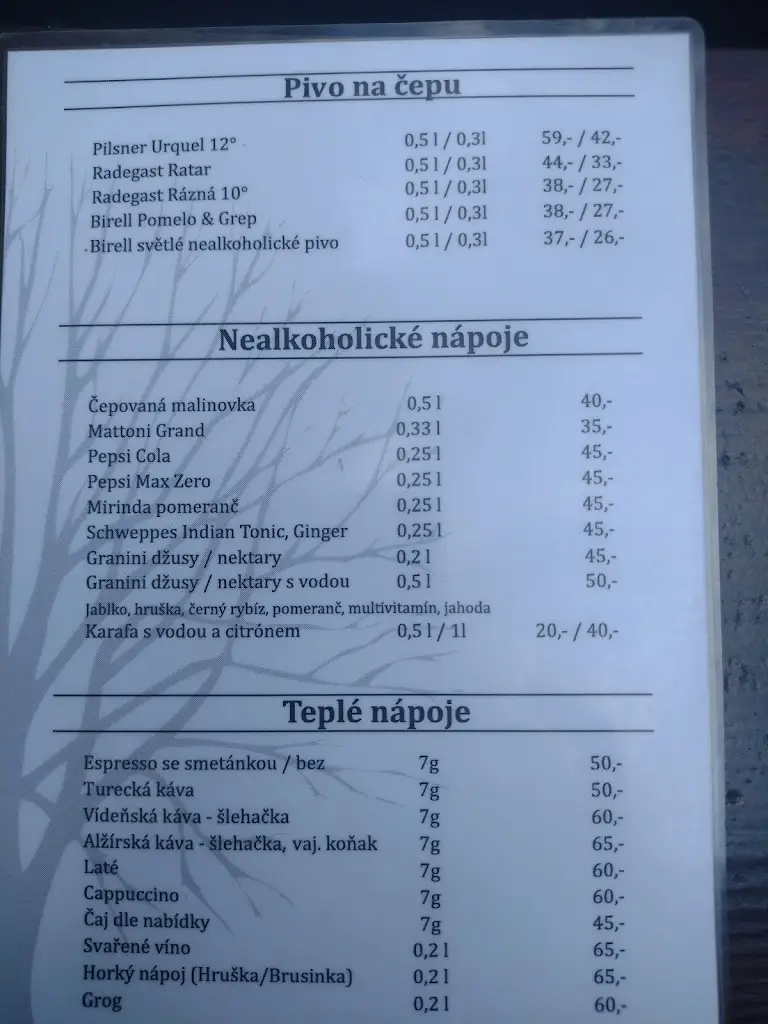 Pivo na čepu
Pilsner Urquel 12° 0,5 l / 0,3l 59,- / 42,-
Radegast Ratar 0,5 l / 0,3l 44,- / 33,-
Radegast Rázná 10° 0,5 l / 0,3l 38,- / 27,-
Birell Pomelo & Grep 0,5 l / 0,3l 38,- / 27,-
Birell světlé nealkoholické pivo 0,5 l / 0,3l 37,- / 26,-
Nealkoholické nápoje
Čepovaná malinovka 0,5 l 40,-
Mattoni Grand 0,33 l 35,-
Pepsi Cola 0,25 l 45,-
Pepsi Max Zero 0,25 l 45,-
Mirinda pomeranč 0,25 l 45,-
Schweppes Indian Tonic, Ginger 0,25 l 45,-
Granini džusy / nektary 0,2 l 45,-
Granini džusy / nektary s vodou 0,5 l 50,-
Jablko, hruška, černý rybíz, pomeranč, multivitamín, jahoda
Karafa s vodou a citrónem 0,5 l / 1l 20,- / 40,-
Teplé nápoje
Espresso se smetánkou / bez 7g 50,-
Turecká káva 7g 50,-
Vídeňská káva - šlehačka 7g 60,-
Alžírská káva - šlehačka, vaj. koňak 7g 65,-
Laté 7g 60,-
Cappuccino 7g 60,-
Čaj dle nabídky 7g 45,-
Svařené víno 0,2 l 65,-
Horký nápoj (Hruška/Brusinka) 0,2 l 65,-
Grog 0,2 l 60,-